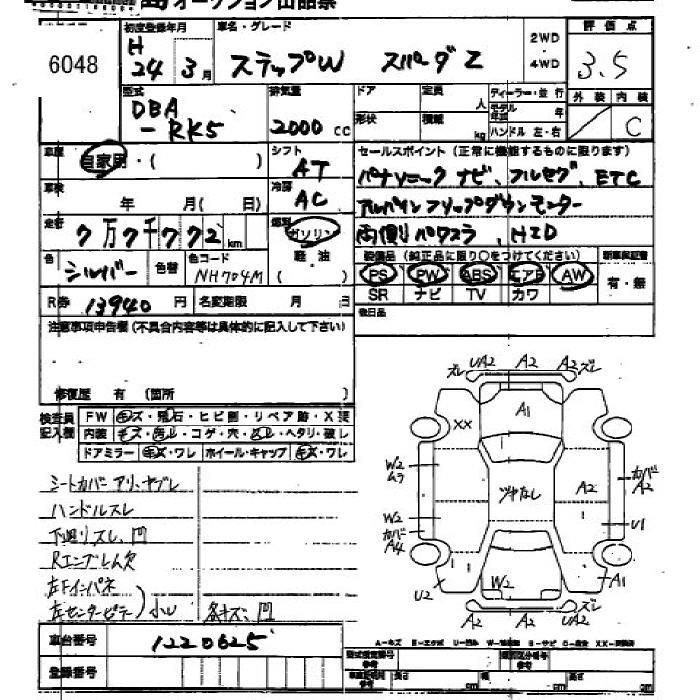 オークション出品票
6048
初度登録年月
H
24 3月
車名・グレード
ステップW スパーダZ
2WD
・
4WD
評価点
3.5
外装 内検
C
型式
DBA
-RK5
排気量
2000 cc
ドア 定員 人
形状 積載 kg
ディーラー・並行
モデル年式 年
ハンドル 左・右
車歴
自家用・( )
シフト
AT
セールスポイント (正常に機能するものに限ります)
パナソニック ナビ、フルセグ、ETC
アルパインフリップダウンモニター
両側パワスラ、HID
車検
年 月(日)
冷房
AC
走行
7万7千772km
燃料
ガソリン
軽油
色
シルバー
色替
色コード
NH704M
装備品 (純正品に限り○をつけてください)
PS PW ABS エアB AW
SR ナビ TV カワ
新車保証書
有・無
R券 13940円
名変期限 月 日
後日品
注意事項申告欄 (不具合内容等は具体的に記入して下さい)
修復歴 有 (箇所 )
検査員
記入欄
FW キズ・飛石・ヒビ割・リペア跡・X要
内装 キズ・汚レ・コゲ・穴・スレ・ヘタリ・破レ
ドアミラー キズ・ワレ ホイール・キャップ キズ・ワレ
シートカバーアリ、ヤブレ
ハンドルスレ
下廻リスレ、凹
Rエンブレム欠
左Fインパネ
左センターピラー 小U
各キズ、凹
ズレ UA2 A2 A2 ズレ
A1
XX
W2
ムラ
カバー
A2
ツヤなし
A2
W2
カバー
A4
U1
U2
W2
A1
A2 A2 ズレ
UA2
車台番号 1220625
登録番号
A-キズ E-エクボ U-凹ミ
長さ cm 幅 cm 高さ cm